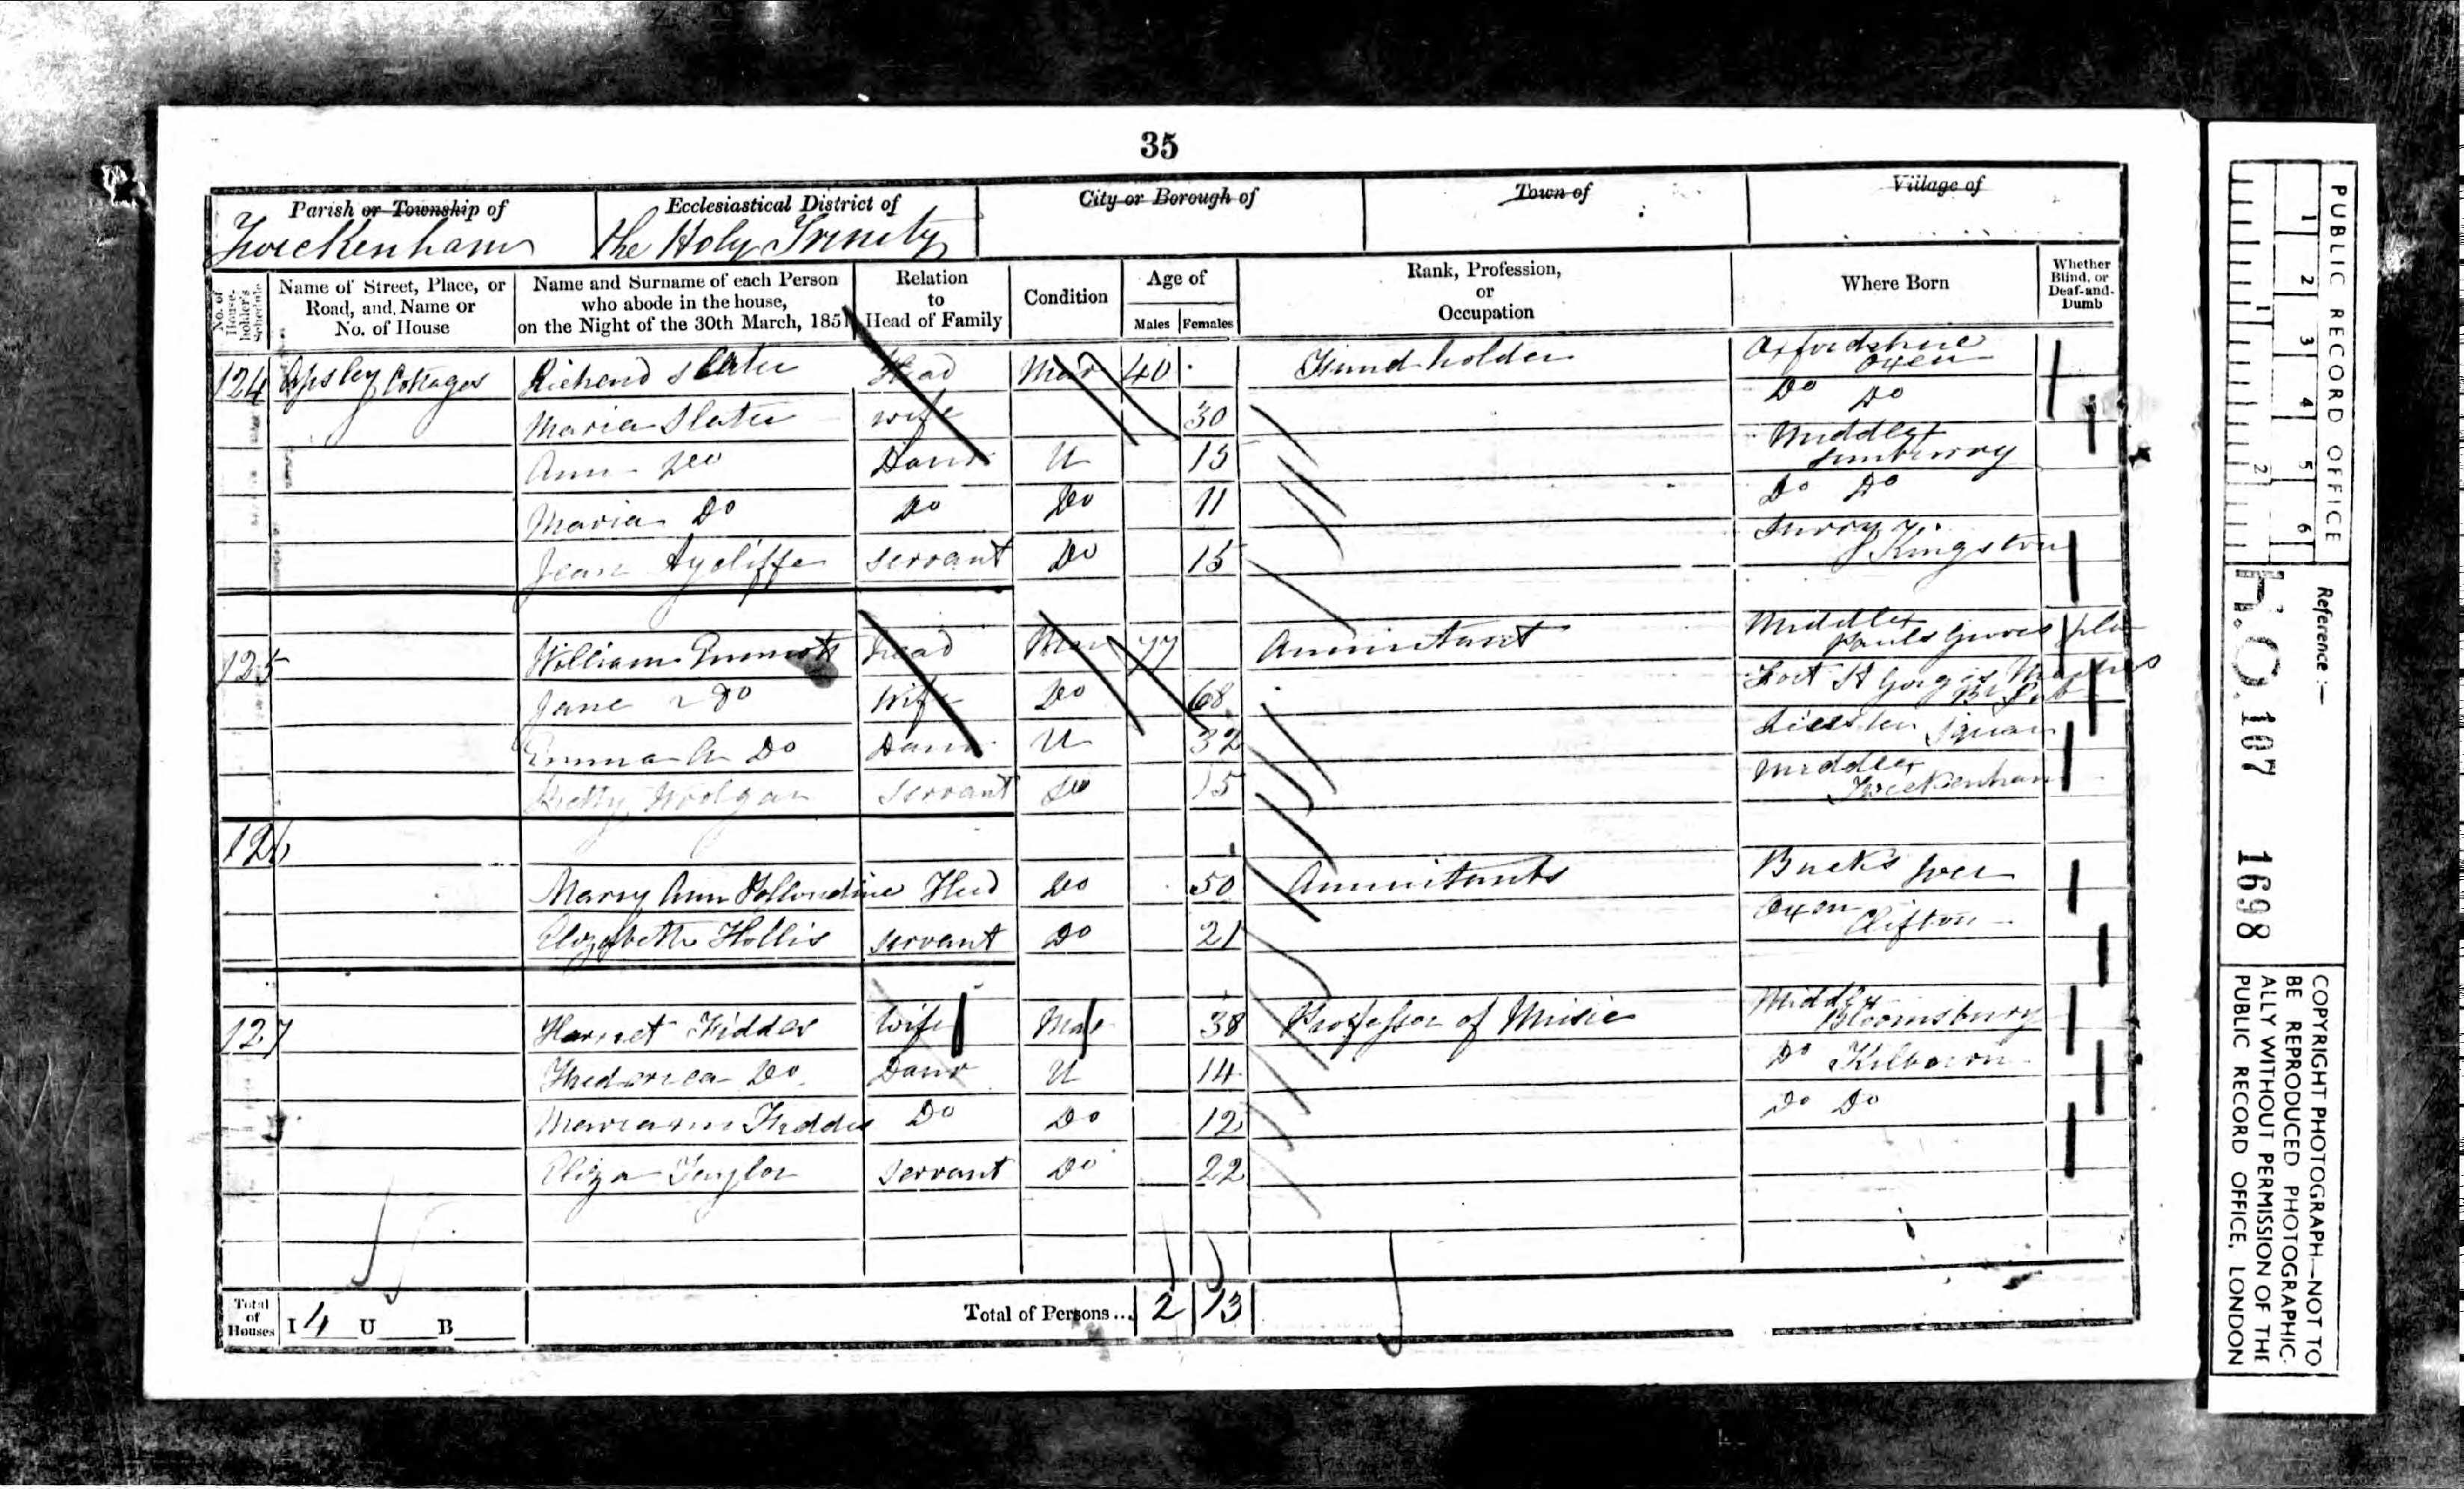 35
Parish or Township of
Twickenham
Ecclesiastical District of
the Holy Trinity
City or Borough of
Town of
Village of
No. of House-holder's Schedule
Name of Street, Place, or Road, and Name or No. of House
Name and Surname of each Person who abode in the house, on the Night of the 30th March, 1851
Relation to Head of Family
Condition
Age of
Males Females
Rank, Profession, or Occupation
Where Born
Whether Blind, or Deaf-and-Dumb
124 Apsley Cottages Richend Slater Head Mar 40 Fund holder Oxfordshire Oxen
Maria Slater wife 30 Do Do
Ann Do Daur U 15 Middlex Sunburry
Maria Do Do Do 11 Do Do
Jean Aycliffe servant Do 15 Surry Kingston
125 William Emmott head Mar 77 Annuitant Middlex Pauls
Jane Do Wife Do 68 Fort St Gorges
Emma A Do Daur U 32 Square
Betty Woolgar servant Do 15 Middlex Twickenham
126
Marry Ann Hed Do 50 Annuitants Bucks Iver
Elizabeth Hollis servant Do 21 Oxen Clifton
127 Harriet Kiddes Wife Mar 38 Professor of Music Middlex Bloomsbury
Daur U 14 Do Kilbourn
Do Do 12 Do Do
Eliza Taylor servant Do 22
Total of Houses I 4 U B
Total of Persons... 2 13
PUBLIC RECORD OFFICE
1 2 3 4 5 6
1 2
Reference :-
H.O. 107 1698
COPYRIGHT PHOTOGRAPH—NOT TO BE REPRODUCED PHOTOGRAPHIC-ALLY WITHOUT PERMISSION OF THE PUBLIC RECORD OFFICE, LONDON